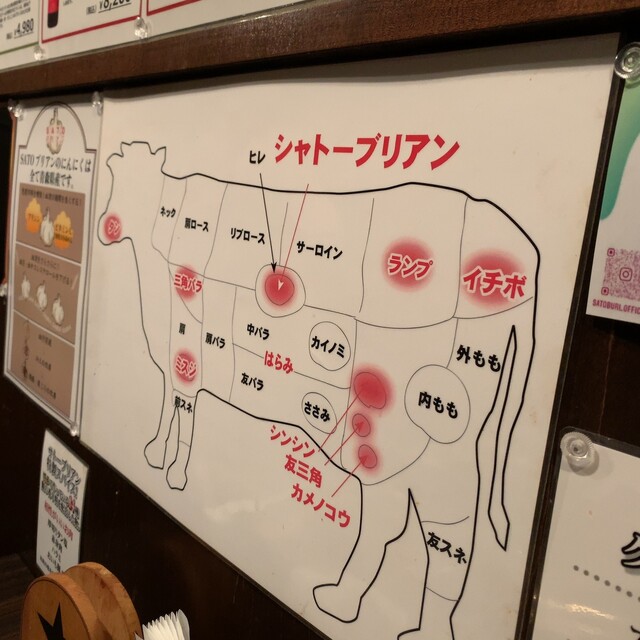 ¥4,980
¥8,200
SATO ブリアンのにんにくは
全て青森県産です。
ヒレ
シャトーブリアン
タン
ネック
肩ロース
リブロース
サーロイン
ランプ
イチボ
三角バラ
肩
肩バラ
中バラ
カイノミ
はらみ
外もも
ミスジ
友バラ
ささみ
内もも
前スネ
シンシン
友三角
カメノコウ
友スネ
SATOBURI.OFFIC